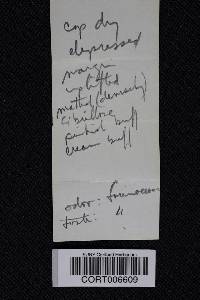 cap dry
depressed
margin
uplifted
matted (densely)
fibrillose
pinkish buff
cream buff
odor: farinaceous
taste: "
SUNY Cortland Herbarium
CORT006609